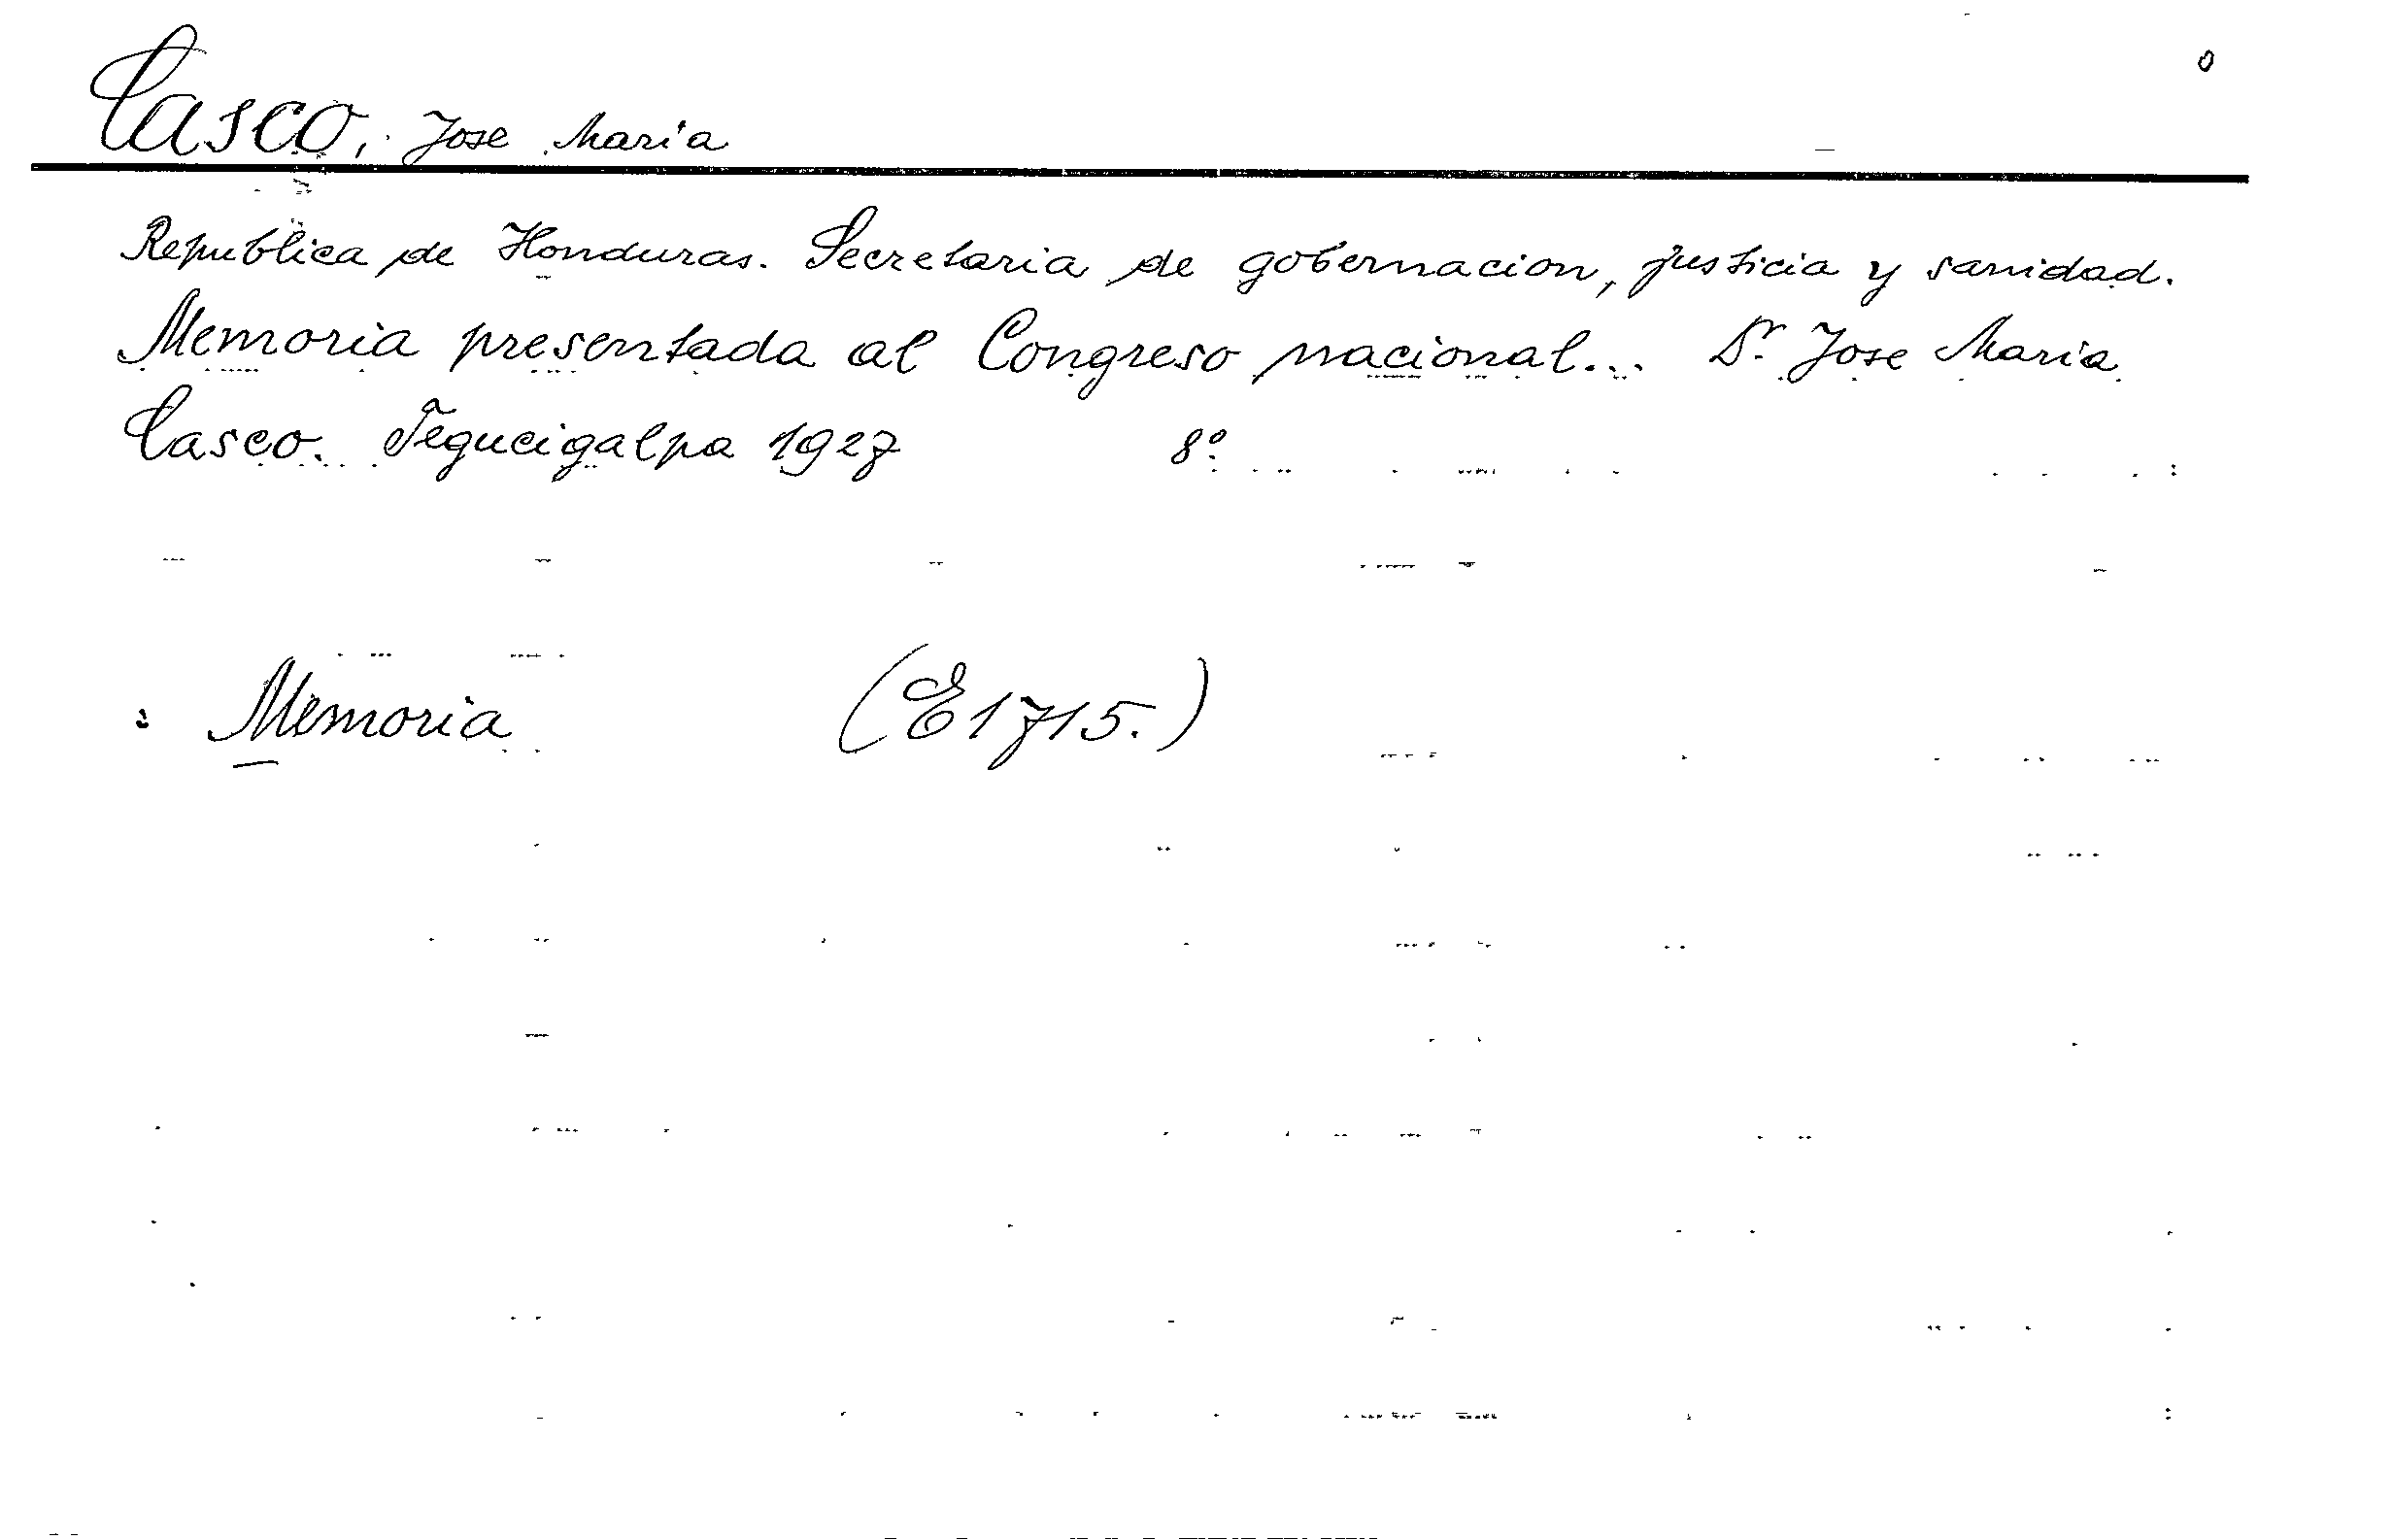 Casco, Jose Maria
Republica de Honduras. Secretaria de gobernacion, justicia y sanidad.
Memoria presentada al Congreso nacional... Dr. Jose Maria
Casco. Tegucigalpa 1927 8º
: Memoria (E1715.)